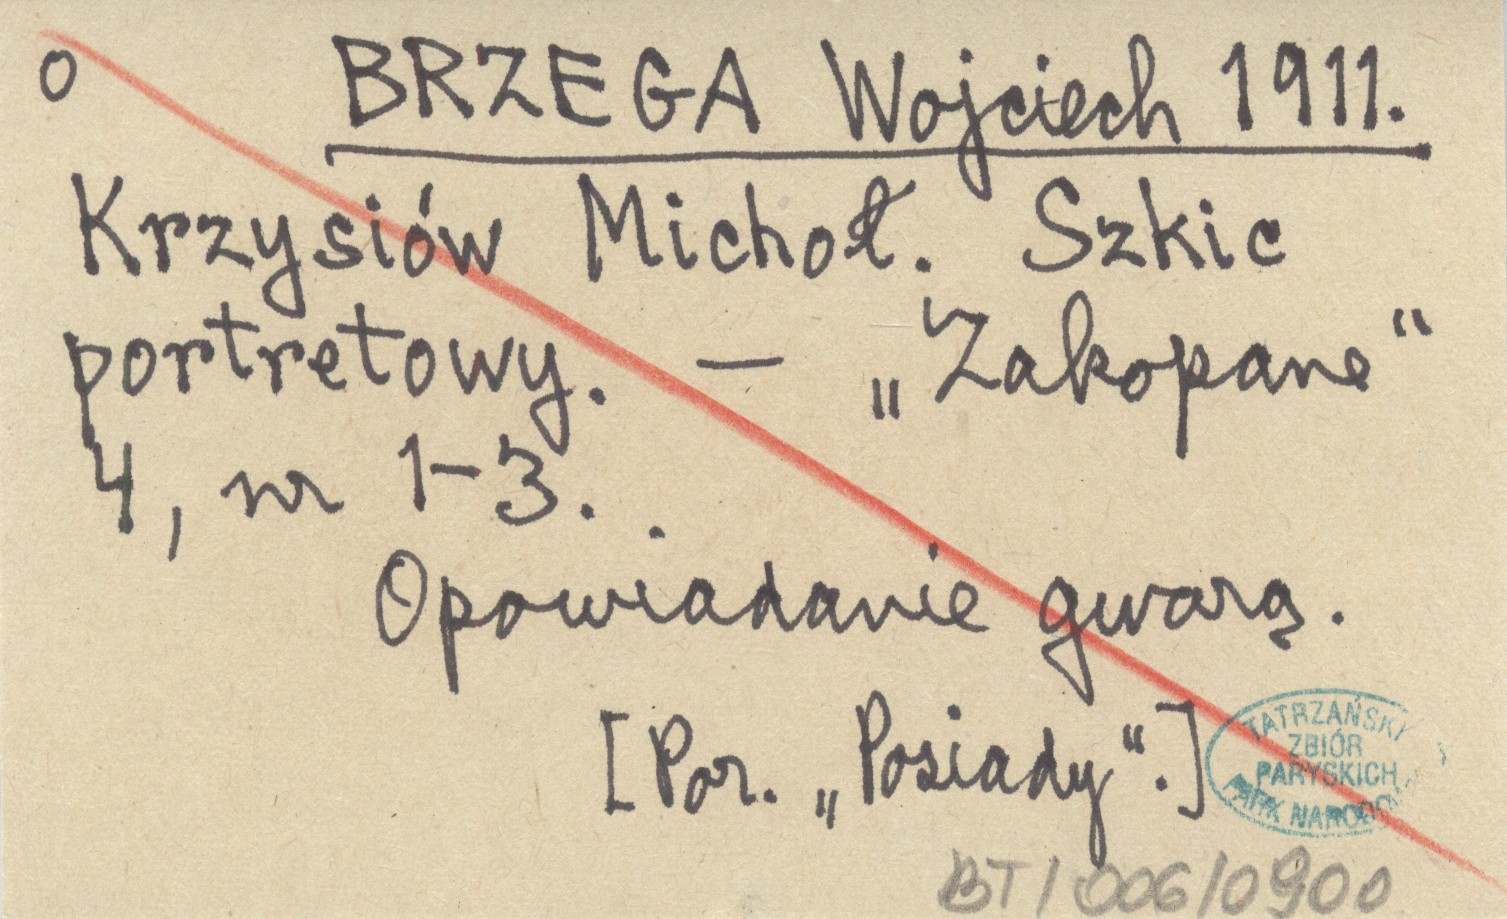 o BRZEGA Wojciech 1911.
Krzysiów Michoł. Szkic
portretowy. — „Zakopane“
4, nr 1-3.
Opowiadanie gwarą.
[Por. „Posiady“.]
TATRZAŃSKI
ZBIÓR
PARYSKICH
PARK NARODOWY
BT/006/0900